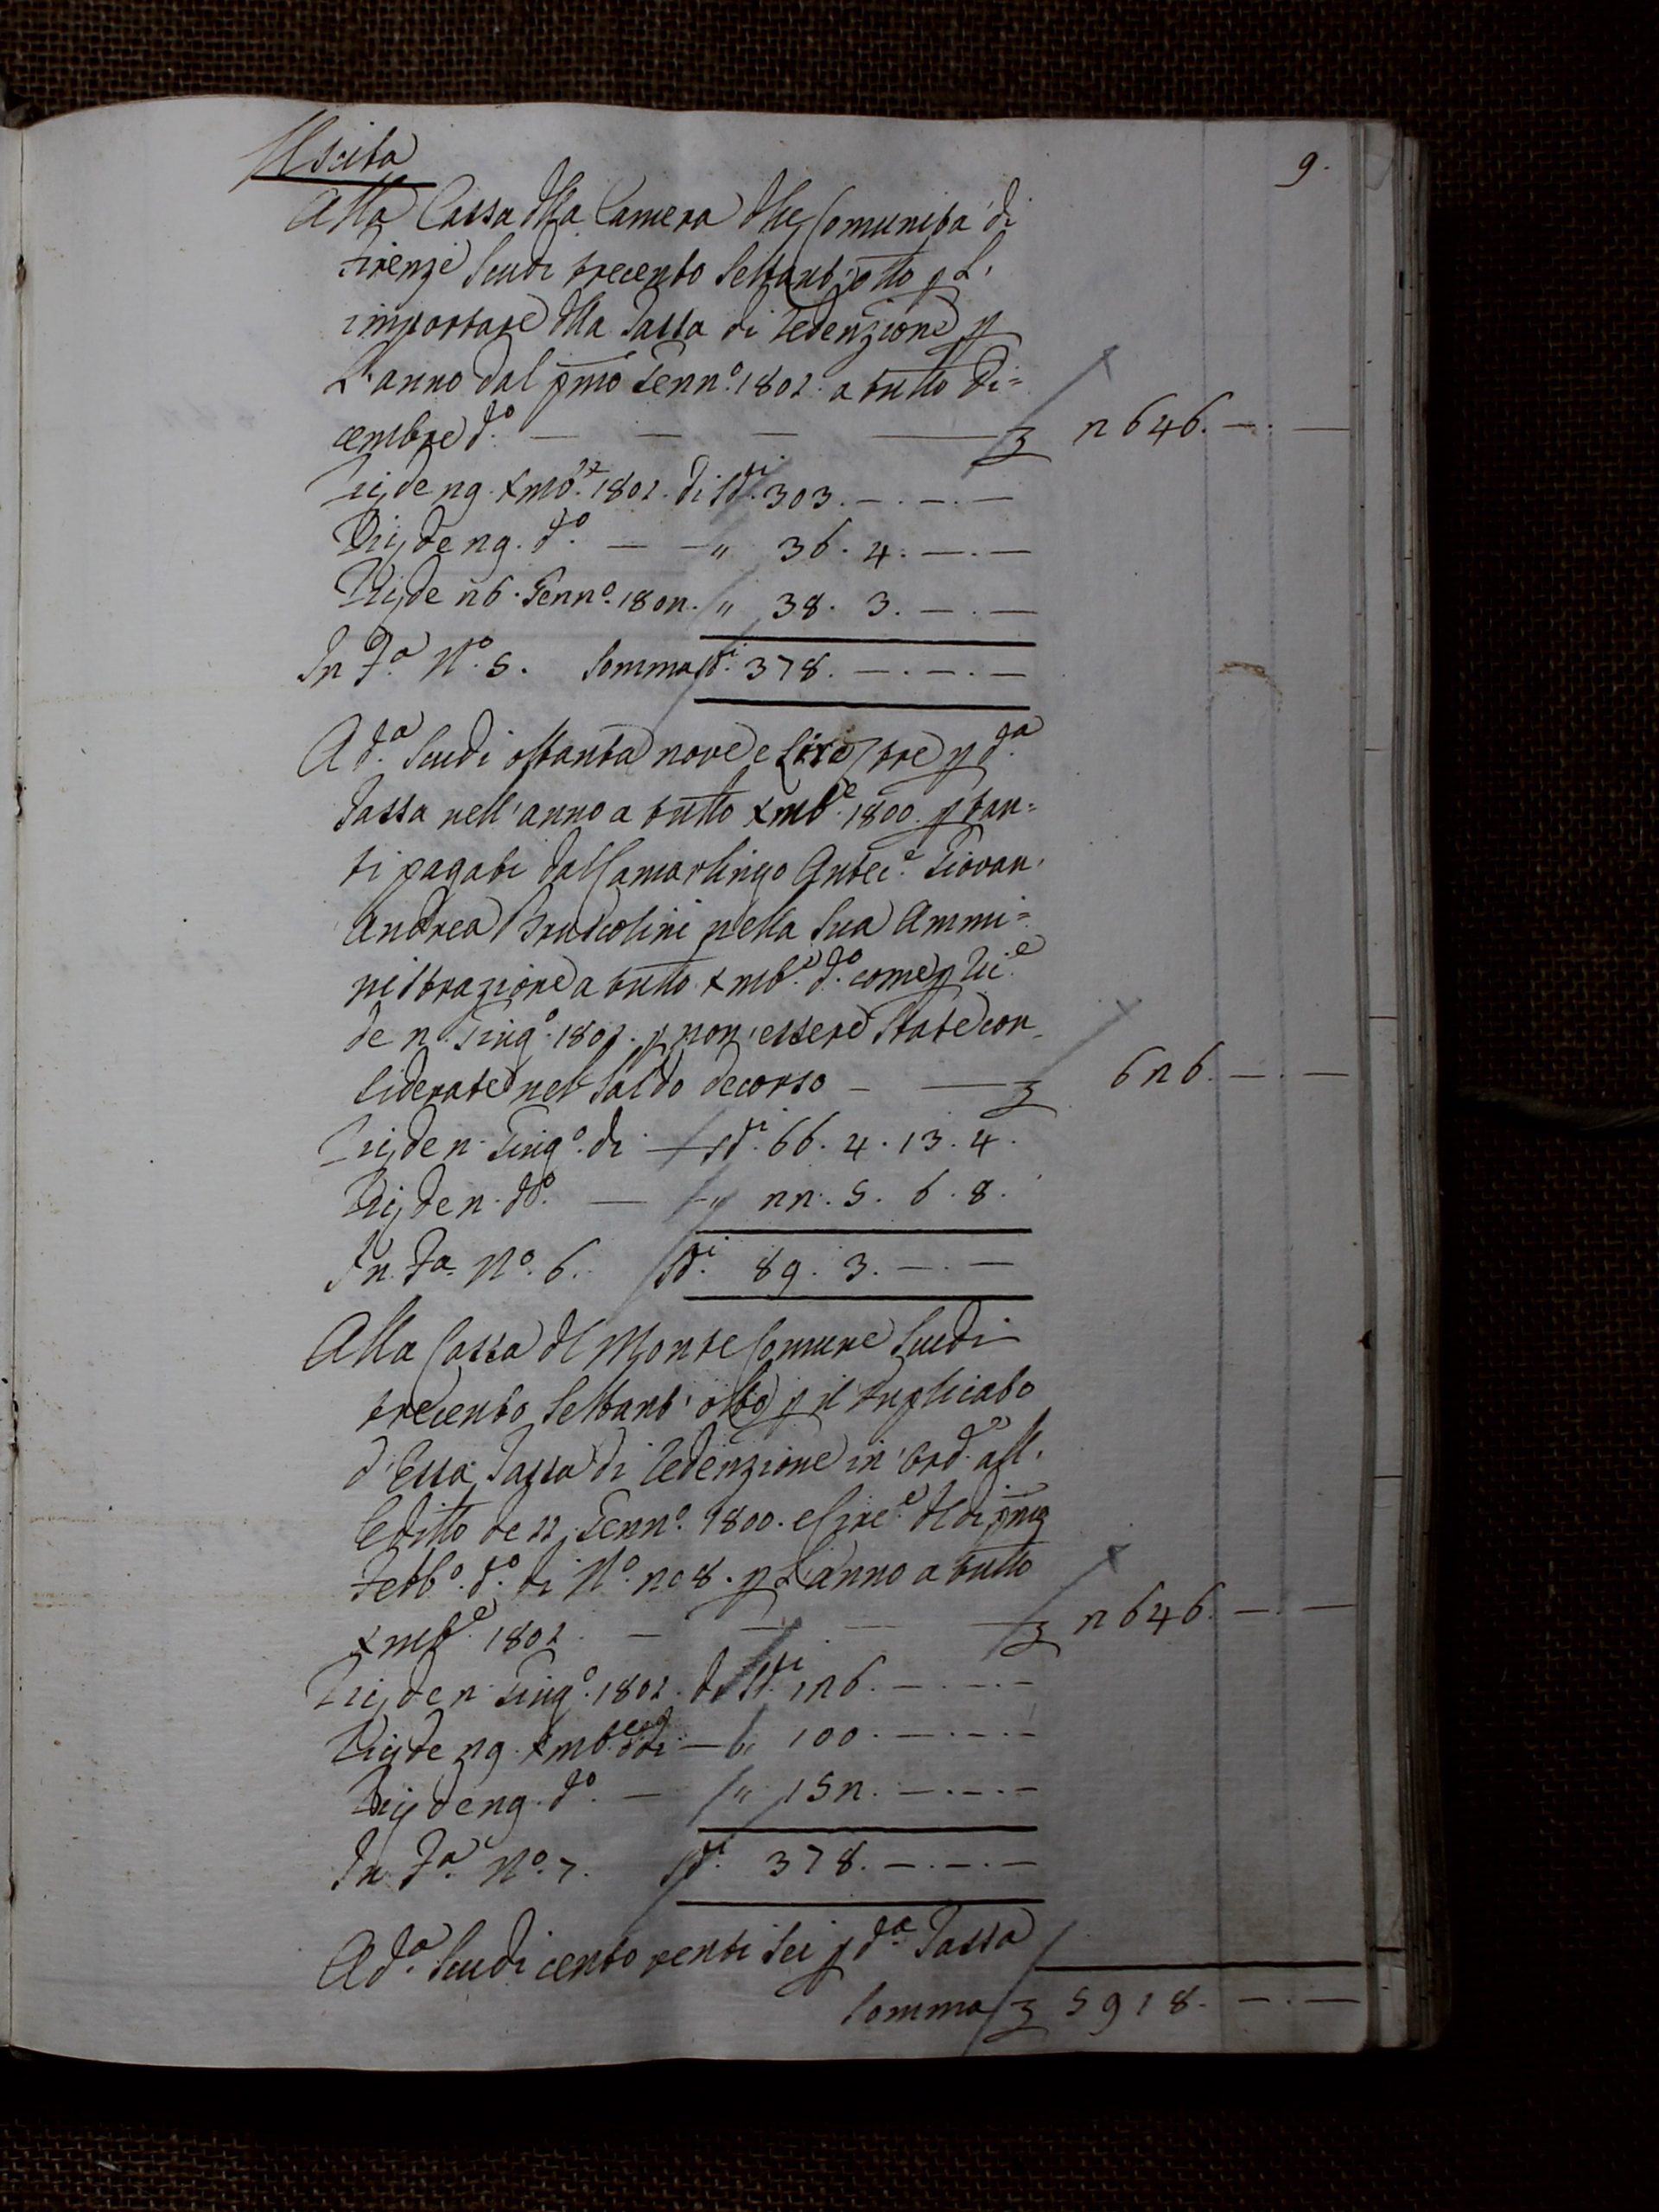 Uscita
9.
Alla Cassa dlla Camera dlle Comunità di
Firenze Scudi trecento Settant'otto p L'
importare dlla Tassa di Redenzione p
L'anno dal pmo Genn.o 1801. a tutto Di=
cembre d.o — — — — £ 2646. —. —
Ric. de 29. Xmb.e 1801. di Sd.i 303. —. —. —
Ric. de 29. d.o — — „ 36. 4. —. —
Ric. de 26. Genn.o 1802. „ 38. 3. —. —
In F.a N.o 5. Somma Sd.i 378. —. —. —
A d.a Scudi ottanta nove e Lire tre p d.a
Tassa nell'anno a tutto Xmb.e 1800. p tan=
ti pagati dal Camarlingo Antec.e Giovan.
Andrea Bruscolini nella Sua Ammi=
nistrazione a tutto Xmb.e d.o come p Ric.e
de 2. Giug.o 1801. p non essere State con
siderate nel Saldo decorso — — £ 626. —. —
Ric. de 2. Giug.o di — Sd.i 66. 4. 13. 4.
Ric. de 2. d.o — „ 22. 5. 6. 8.
In F.a N.o 6. Sd.i 89. 3. —. —
Alla Cassa dl Monte Comune Scudi
trecento Settant'otto p il Duplicato
d'Essa Tassa di Redenzione in ord.e all'
Editto de 11. Genn.o 1800. e Circ.e dl di pmo
Febb.o d.o di N.o 208. p L'anno a tutto
Xmb.e 1801. — — — £ 2646. —. —
Ric. de 2. Giug.o 1801. di Sd.i 126. —. —. —
Ric. de 29. Xmb.e d.o di — „ 100. —. —. —
Ric. de 29. d.o — „ 152. —. —. —
In F.a N.o 7. Sd.i 378. —. —. —
A d.a Scudi cento venti Sei p d.a Tassa
Somma £ 5918. —. —